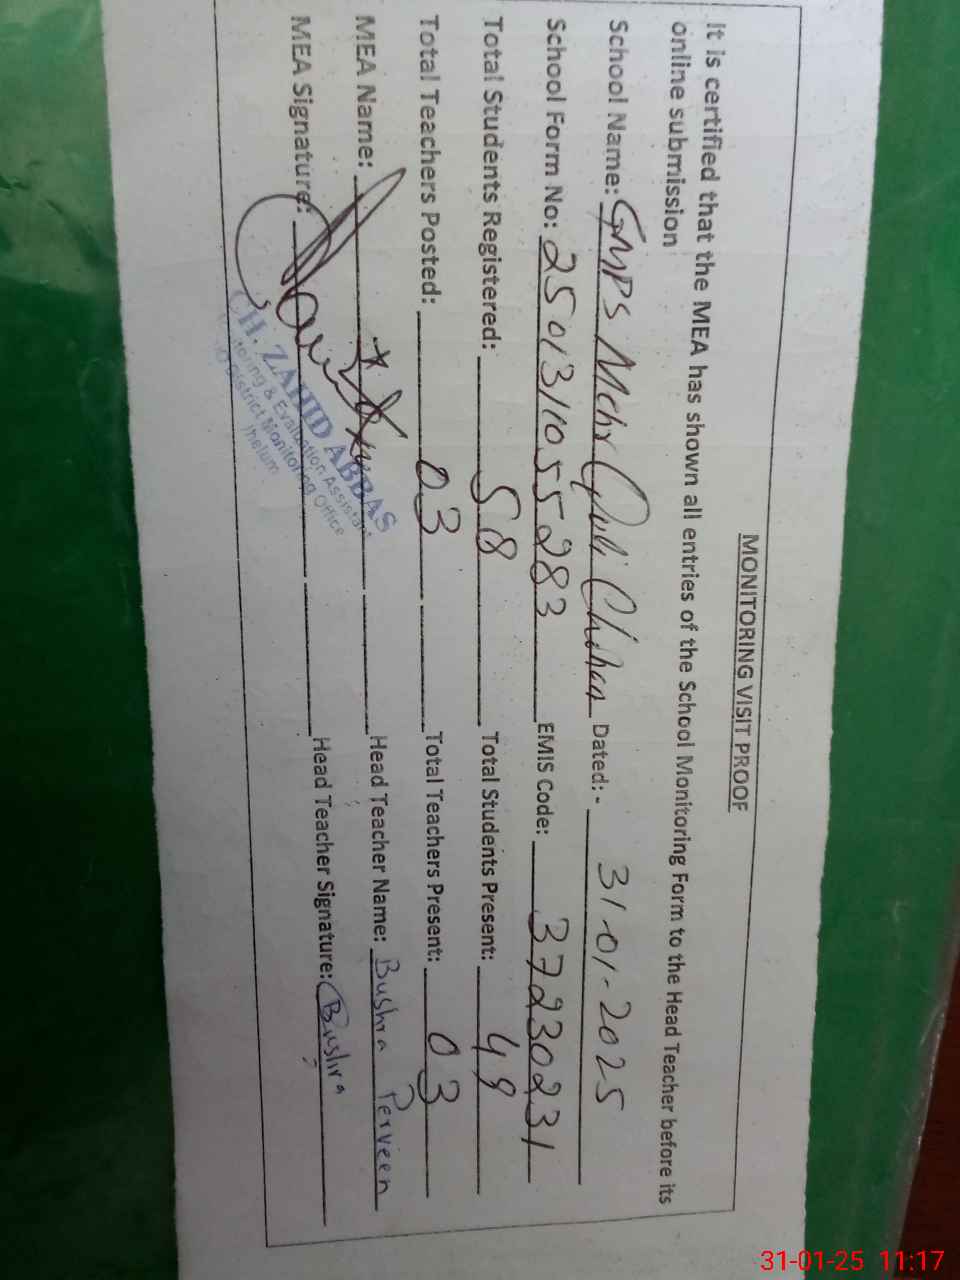 MONITORING VISIT PROOF
It is certified that the MEA has shown all entries of the School Monitoring Form to the Head Teacher before its
online submission
School Name: GMPS Mehr Chihan Dated:- 31-01-2025
School Form No: 25013105 5283 EMIS Code: 37230231
Total Students Registered: 58 Total Students Present: 49
Total Teachers Posted: 03 Total Teachers Present: 03
MEA Name: Head Teacher Name: Bushra Perveen
MEA Signature: Head Teacher Signature: Bushra
CH. ZAHID ABBAS
toring & Evaluation Assistant
O District Monitoring Office
Jhelum
31-01-25 11:17